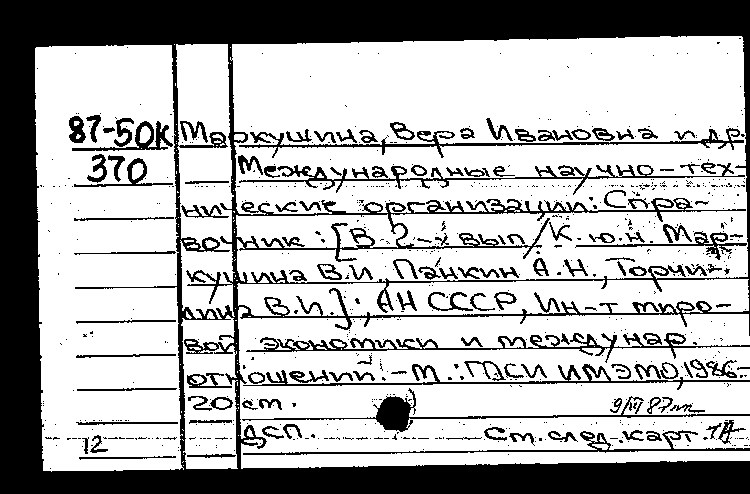 87-50К Маркушина, Вера Ивановна и др.
370 Международные научно-тех-
нические организации: Спра-
вочник: [В 2-х вып / К.ю.н. Мар-
кушина В.И., Панкин А.Н., Торчи-
лина В.И.]; АН СССР, Ин-т миро-
вой экономики и междунар.
отношений. - М.: ГПСИ ИМЭМО, 1986-
20 см.
ДСП. Ст. след. карт.
12